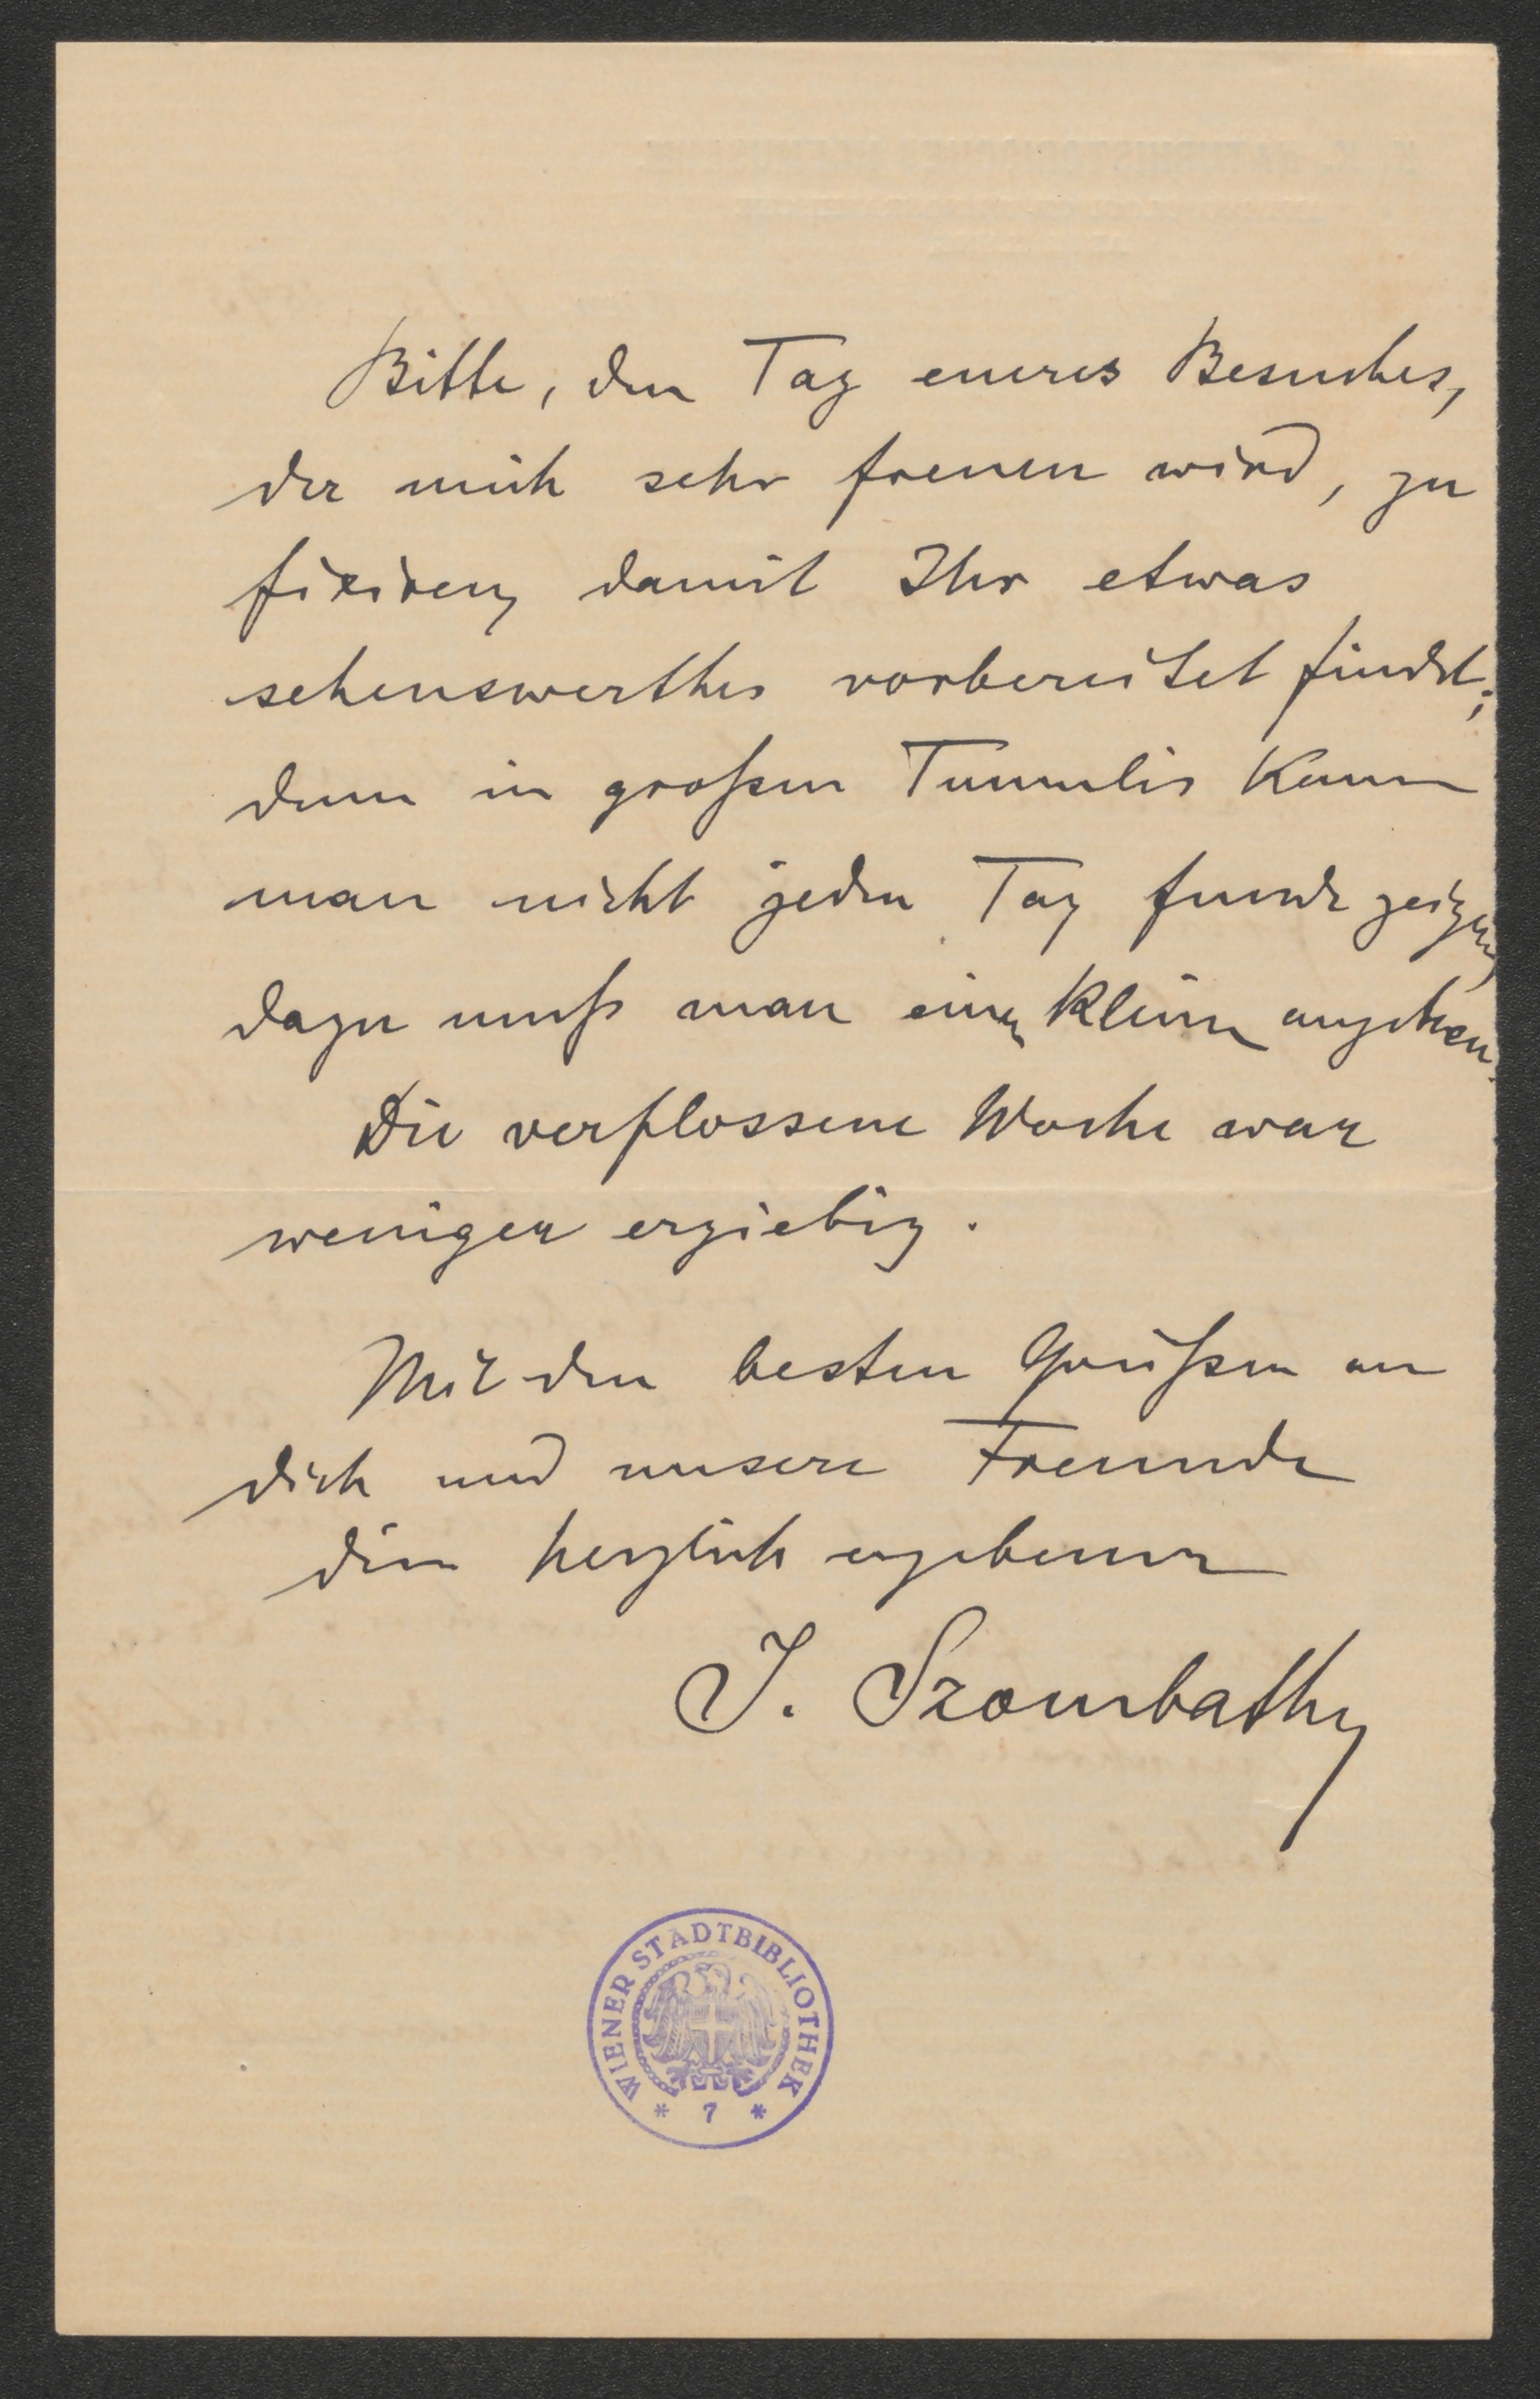 Bitte, den Tag eueres Besuches,
der mich sehr freuen wird, zu
fixiren, damit Ihr etwas
sehenswerthes vorbereitet findet;
denn in großen Tumulis kann
man nicht jeden Tag funde zeigen,
dazu muß man einen kleinen angehen.
Die verflossene Woche war
weniger ergiebig.
Mit den besten Grüßen an
dich und unsere Freunde
dein herzlich ergebener
J. Szombathy
WIENER STADTBIBLIOTHEK
* 7 *